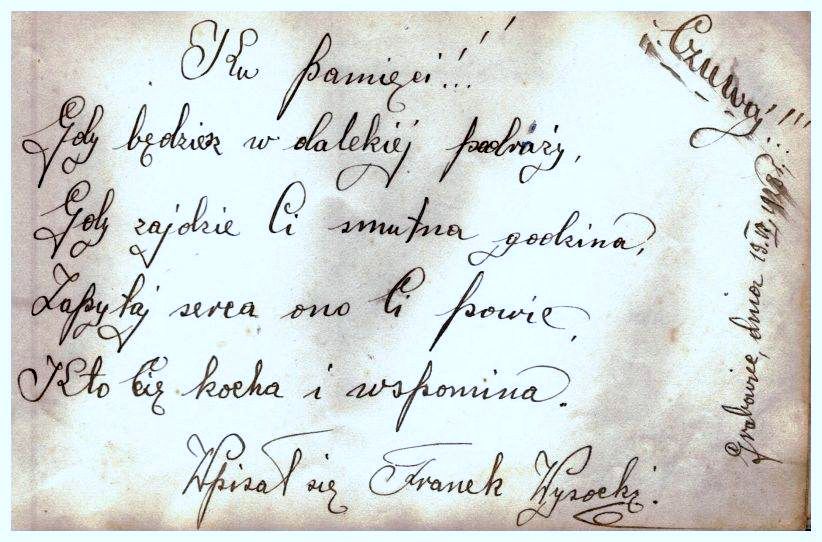 Ku pamięci!!!
Gdy będziesz w dalekiej podróży,
Gdy zajdzie Ci smutna godzina,
Zapytaj serca ono Ci powie,
Kto Cię kocha i wspomina.
Wpisał się Franek Wysocki.
Czuwaj!!!
Grabowiec, dnia 19.